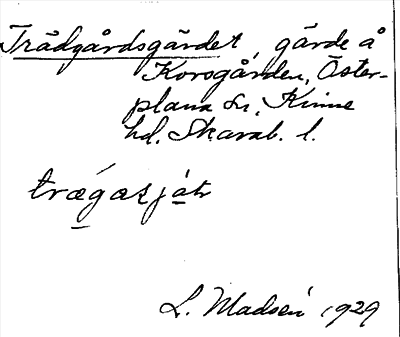 Trädgårdsgärdet, gärde å
Korsgården, Öster-
plana sn, Kinne
hd. Skarab. l.
trǽgasjátr
L. Madsén 1929